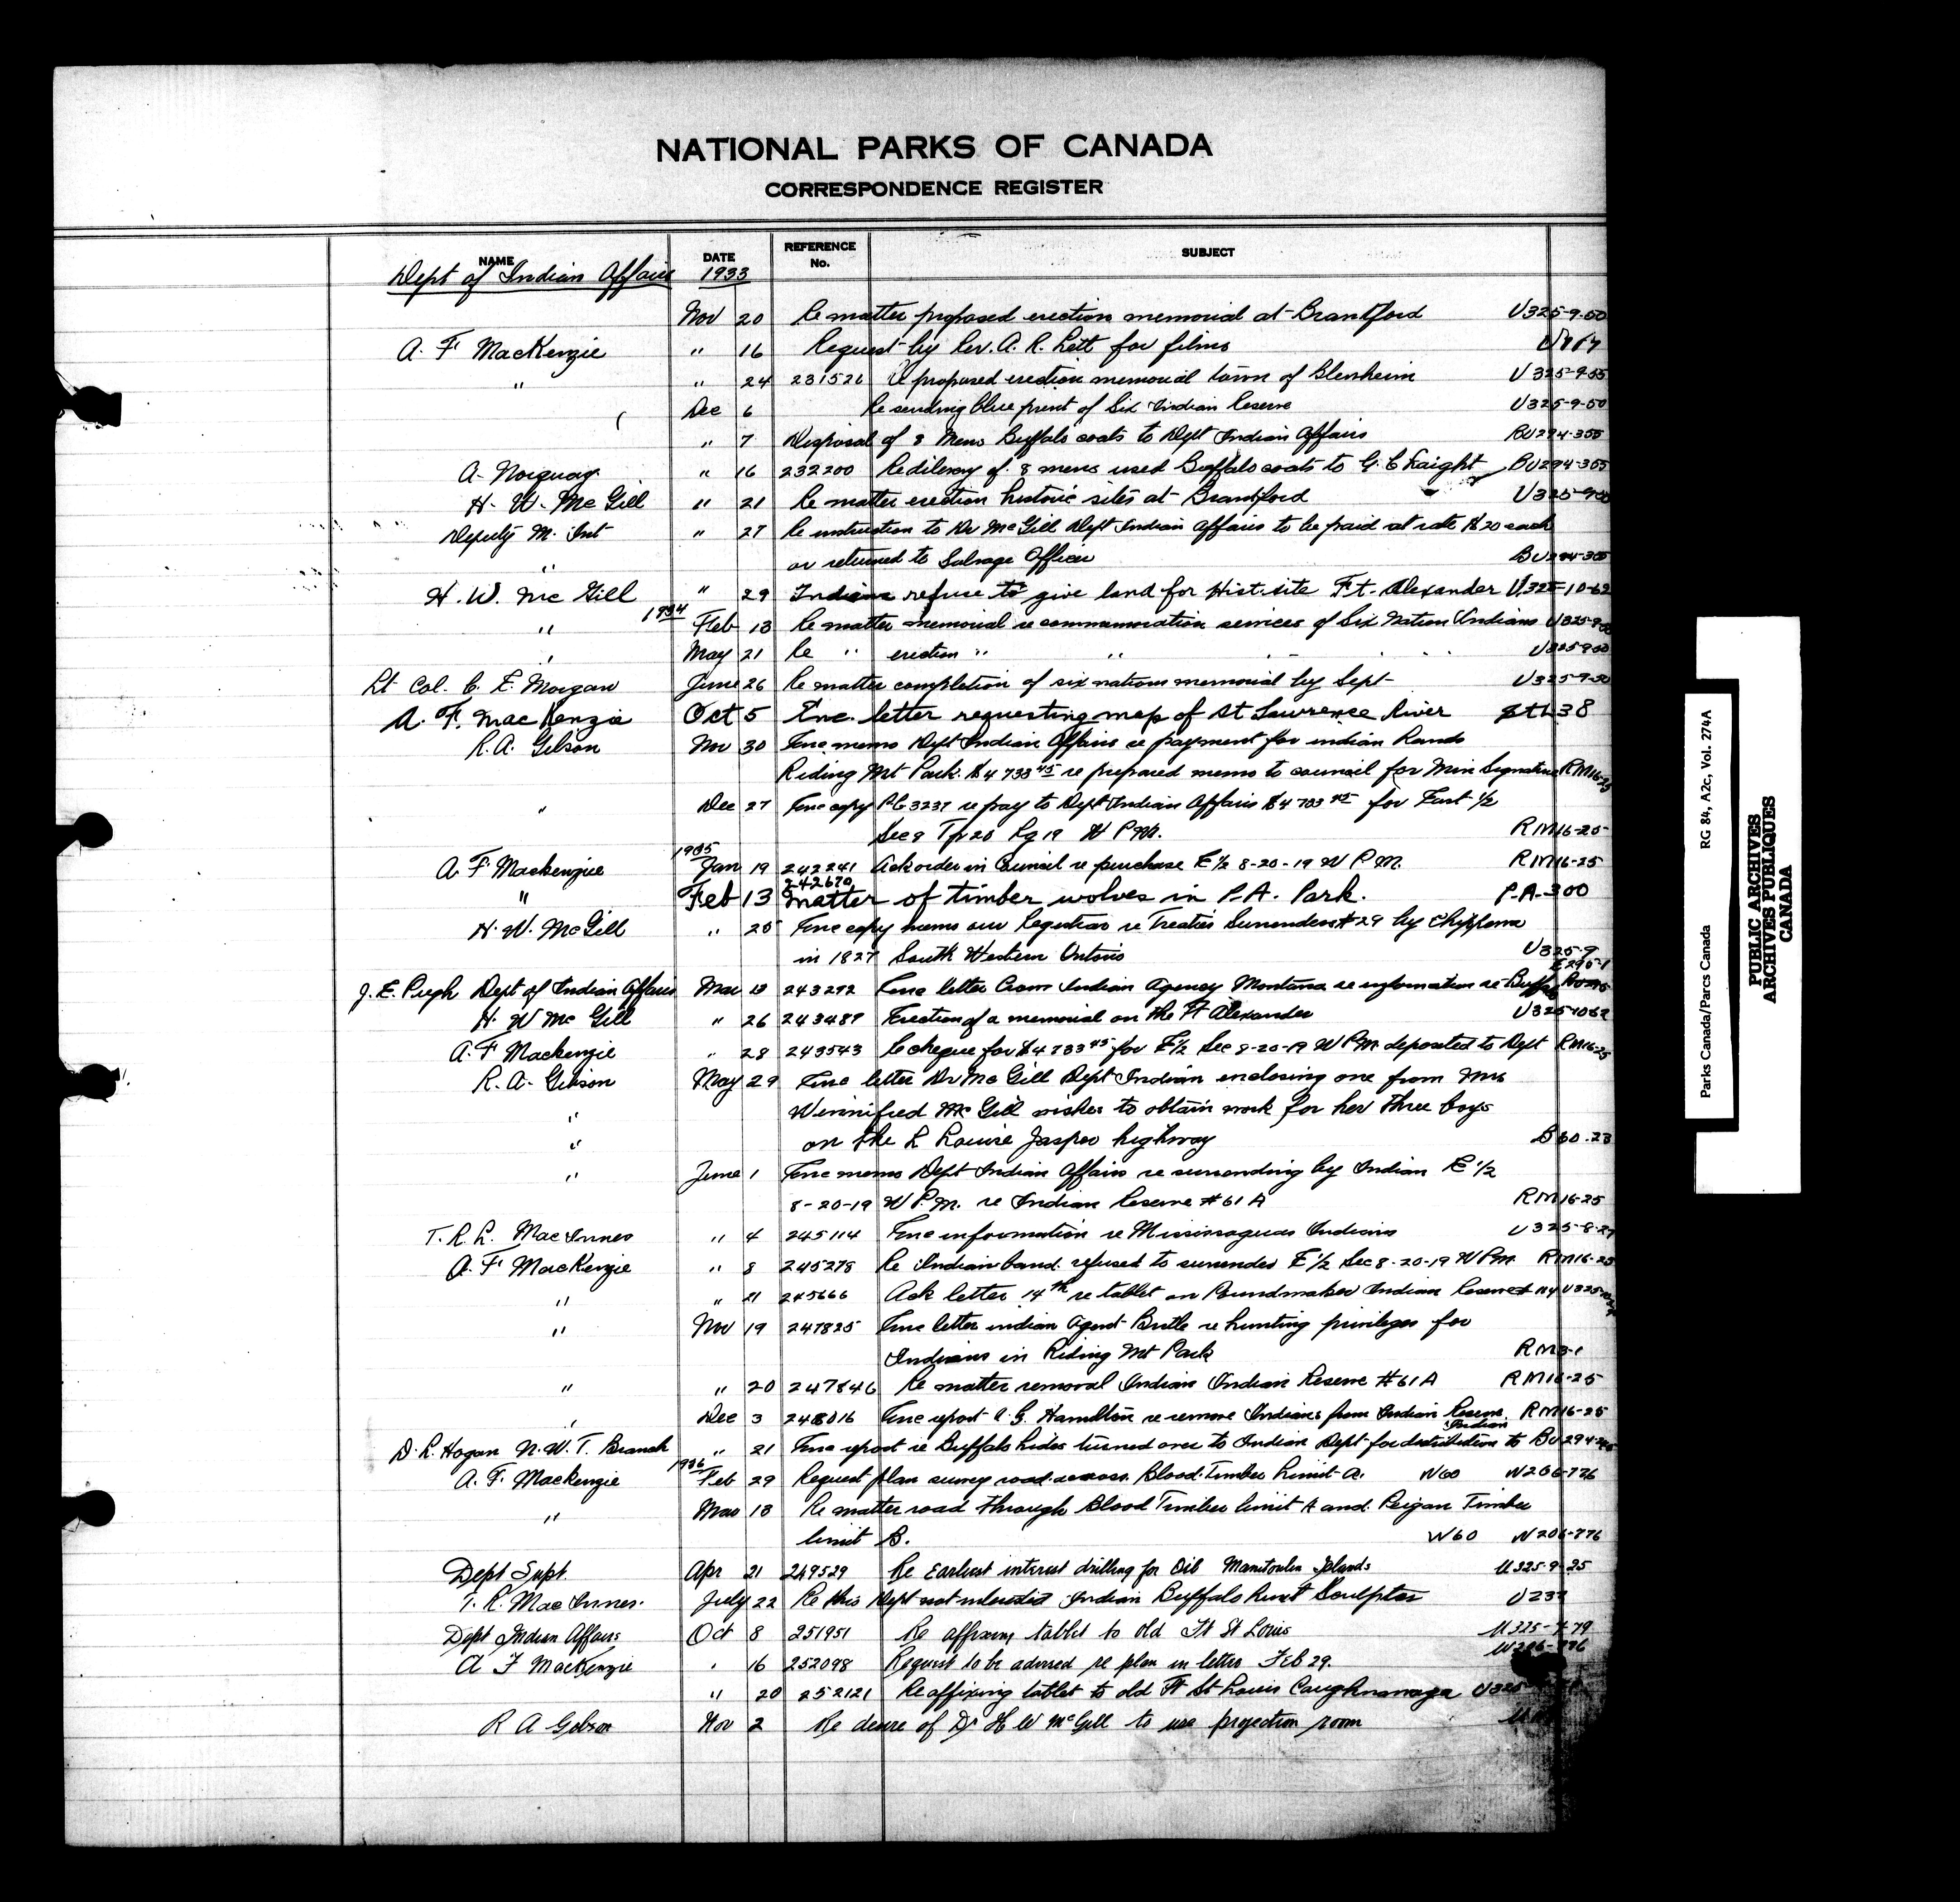 NATIONAL PARKS OF CANADA
CORRESPONDENCE REGISTER
NAME DATE REFERENCE No. SUBJECT
Dept of Indian Affairs 1933
Nov 20 Re matter proposed erection memorial at Brantford U325-9-50
A. F. MacKenzie " 16 Request by Rev. A. R. Lett for films
" " 24 231526 Re proposed erection memorial town of Glenheim U325-9-55
Dec 6 Re sending blue print of Six Indian Reserve U325-9-50
" 7 Disposal of 8 Mens Buffalo coats to Dept Indian Affairs BU294-355
A. Norquay " 16 232200 Re delivery of 8 mens used Buffalo coats to G. C. BU294-355
H. W. McGill " 21 Re matter erection historic sites at Brantford U325-9-50
Deputy M. Int " 27 Re instruction to Dr McGill Dept Indian Affairs to be paid at rate $20 each
" or returned to Salvage Officer BU294-355
H. W. McGill " 29 Indians refuse to give land for Hist. site Ft. Alexander U325-10-62
" 1934 Feb 13 Re matter memorial re commemoration services of Six Nation Indians U325-9-50
" May 21 Re " erection " " " " U325-9-50
Lt Col. C. E. Morgan June 26 Re matter completion of six nations memorial by Sept U325-9-50
A. F. MacKenzie Oct 5 Enc. letter requesting map of St Lawrence River StL38
R. A. Gibson Nov 30 Enc memo Dept Indian Affairs re payment for indian Lands
Riding Mt Park. $4733.45 re prepared memo to council for Min Signature RM16-25
" Dec 27 Enc copy PC 3237 re pay to Dept Indian Affairs $4733.45 for East 1/2
Sec 8 Tp 20 Rg 19 W P M. RM16-25
A. F. Mackenzie 1935 Jan 19 242241 Ack order in Council re purchase E 1/2 8-20-19 W P M. RM16-25
" Feb 13 242670 Matter of timber wolves in P.A. Park. P.A.300
H. W. McGill " 25 Enc copy memo our Registrar re Treaties Surrenders #29 by Chippewa
in 1827 South Western Ontario U325-9
E295-1
J. E. Pugh Dept of Indian Affairs Mar 13 243292 Enc letter Crow Indian Agency Montana re information re Buffalo
H. W McGill " 26 243489 Erection of a memorial on the Ft Alexander U325-10-62
A. F Mackenzie " 28 243543 Re cheque for $4733.45 for E 1/2 Sec 8-20-19 W P M deposited to Dept RM16-25
R. A. Gibson May 29 Enc letter Dr McGill Dept Indian enclosing one from Mrs
" Winnifred McGill wishes to obtain work for her three boys
" on the L Louise Jasper highway B60.23
" June 1 Enc memo Dept Indian Affairs re surrending by Indian E 1/2
8-20-19 W P. M. re Indian Reserve #61A RM16-25
T. R. L. MacInnes " 4 245114 Enc information re Mississaguas Indians U325-8-27
A. F. MacKenzie " 8 245278 Re Indian band refused to surrender E 1/2 Sec 8-20-19 W PM. RM16-25
" " 21 245666 Ack letter 14th re tablet on Poundmaker Indian Reserve #114
" Nov 19 247825 Enc letter indian Agent Birtle re hunting privileges for
Indians in Riding Mt Park RM3-1
" " 20 247846 Re matter removal Indian Indian Reserve #61A RM16-25
" Dec 3 248016 Enc report A. G. Hamilton re remove Indians from Indian Reserve RM16-25
D. L. Hogan N. W. T. Branch " 21 Enc report re Buffalo hides turned over to Indian Dept for distribution to Indian
A. F. Mackenzie 1936 Feb 29 Request plan survey road across Blood Timber Limit A. W60 W206-776
" Mar 13 Re matter road through Blood Timber limit A and Peigan Timber
limit B. W60 W206-776
Dept Supt. Apr 21 249529 Re Earliest interest drilling for Oil Manitoulin Islands U325-9-25
T. R. MacInnes. July 22 Re this Dept not interested Indian Buffalo Hunt Sculptor U237
Dept Indian Affairs Oct 8 251951 Re affixing tablet to old Ft St Louis U325-7-79
A F MacKenzie " 16 252098 Request to be advised re plan in letter Feb 29. W206-776
" 20 252121 Re affixing tablet to old Ft St Louis Caughnawaga U325
R A Gibson Nov 2 Re desire of Dr H W McGill to use projection room
Parks Canada/Parcs Canada RG 84, A2c, Vol. 274A
PUBLIC ARCHIVES
ARCHIVES PUBLIQUES
CANADA